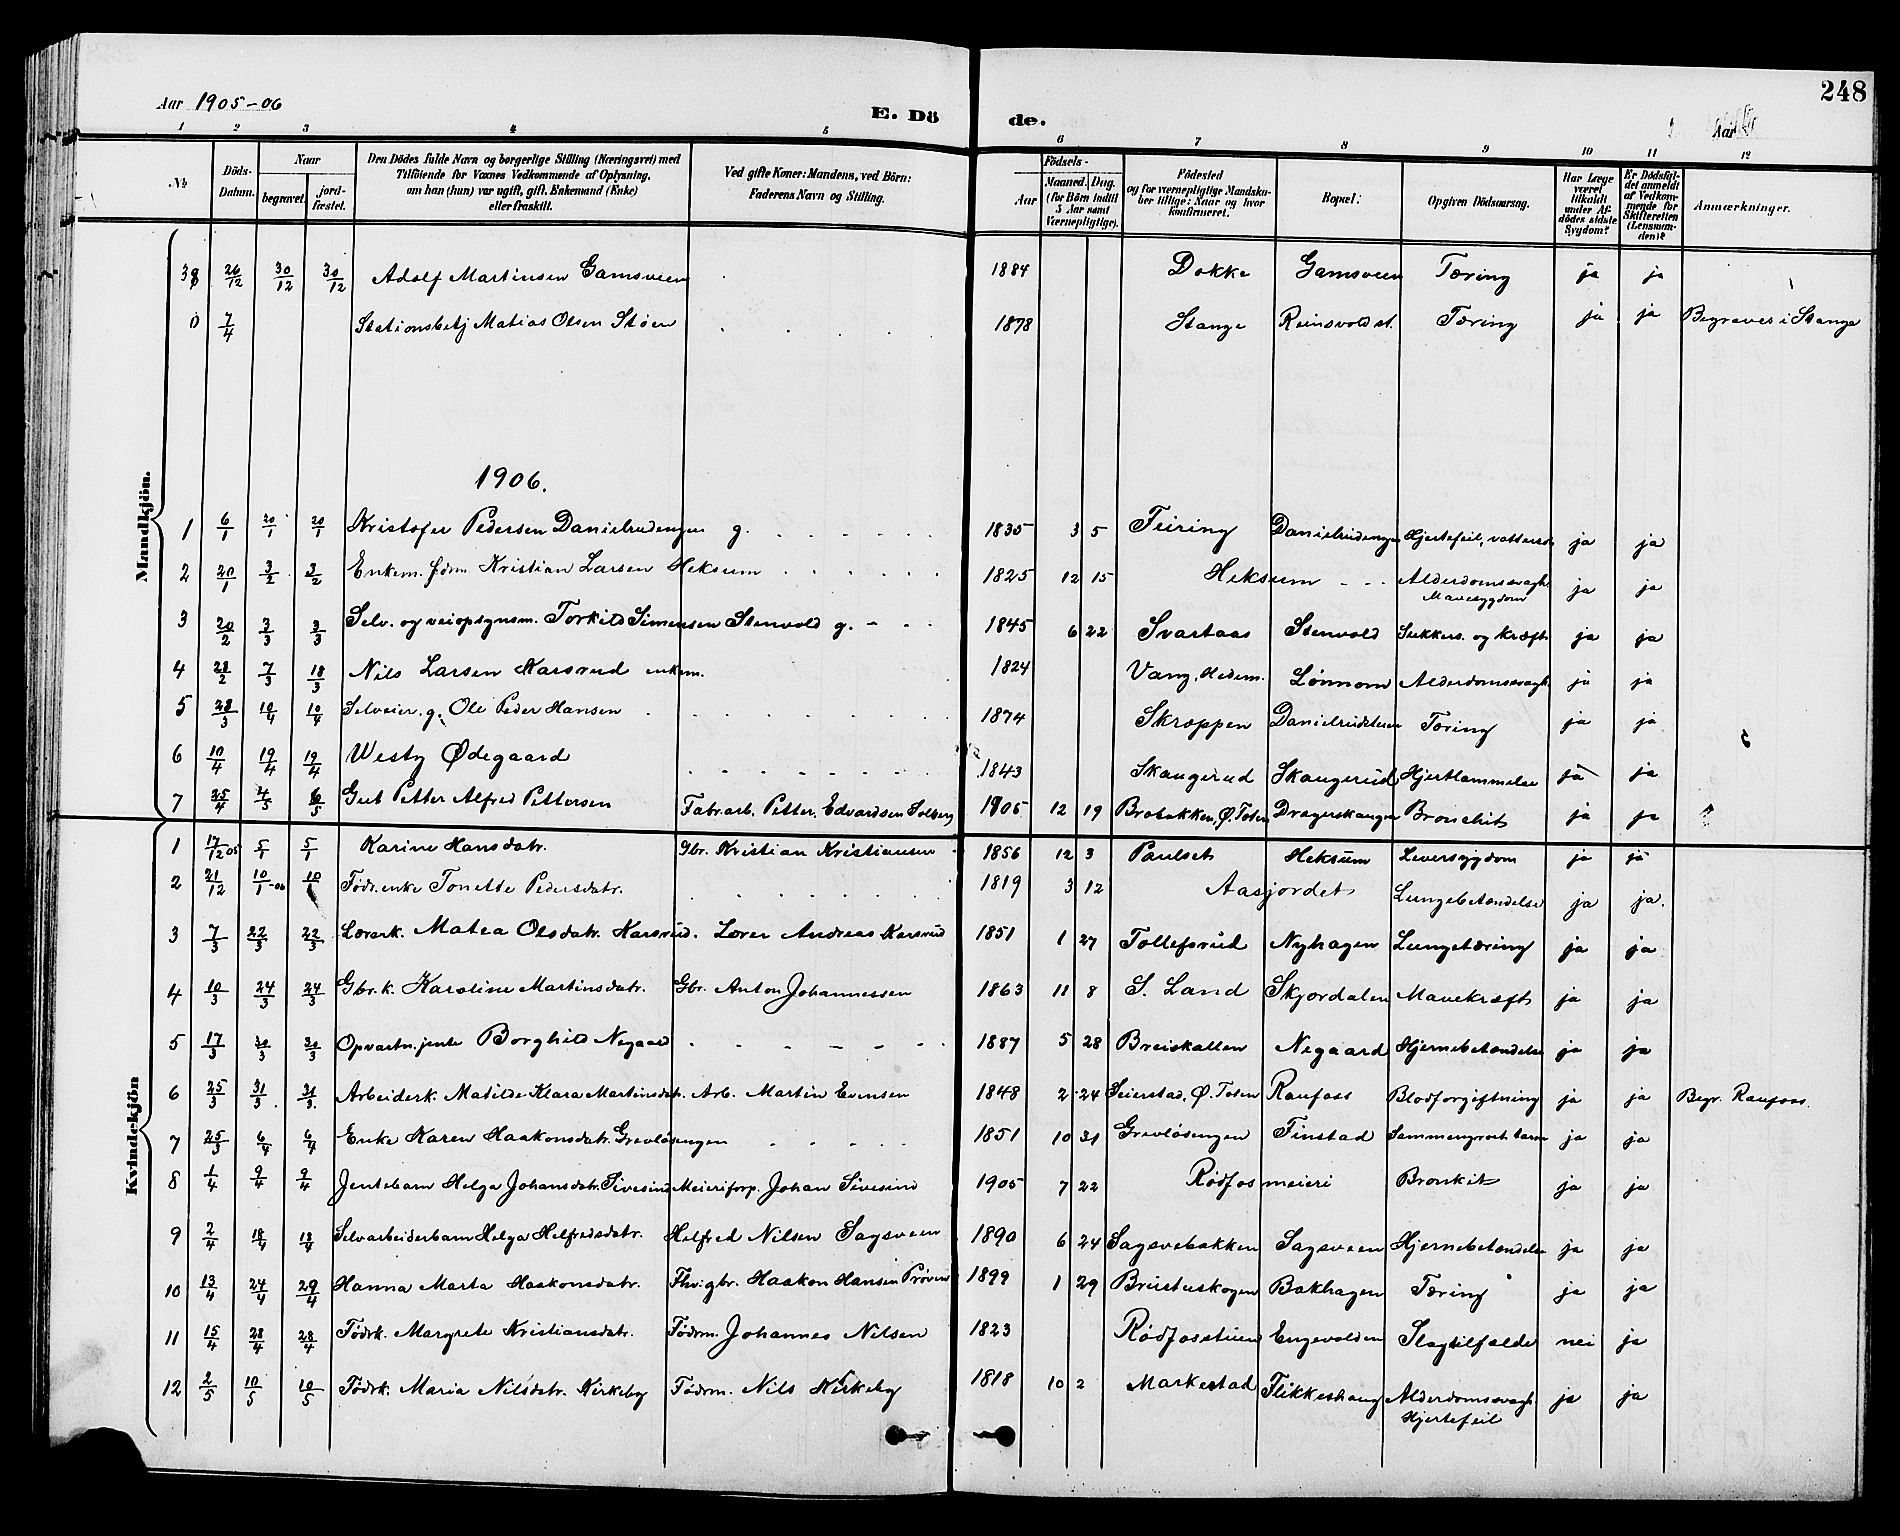 Aar 1905-06
E. Dö de.
Aar
248
1 2 3 4 5 6 7 8 9 10 11 12
No.
Döds-Datum.
Naar
begravet.
jord-fæstet.
Den Dödes fulde Navn og borgerlige Stilling (Næringsvei) med
Tilföiende for Voxnes Vedkommende af Oplysning,
om han (hun) var ugift, gift, Enkemand (Enke)
eller fraskilt.
Ved gifte Koner: Mandens, ved Börn:
Faderens Navn og Stilling.
Födsels-
Aar
Maaned. Dag.
(for Börn indtil
5 Aar samt
Værnepligtige).
Födested
og for værnepligtige Mandska-
ber tillige: Naar og hvor
konfirmeret.
Bopæl:
Opgiven Dödsaarsag.
Har Læge
været
tilkaldt
under Af-
dödes sidste
Sygdom?
Er Dödsfal-
det anmeldt
af Vedkom-
mende for
Skifteretten
(Lensman-
den)?
Anmærkninger.
Mandkjön.
38 26/12 30/12 30/12 Adolf Martinsen Gamsveen 1884 Dokke Gamsveen Tæring ja ja
0 7/4 Stationsbetj Matias Olsen Støen 1878 Stange Reinsvold st. Tæring ja ja Begraves i Stange
1906.
1 6/1 20/1 20/1 Kristofer Pedersen Danielrudengen g. 1835 3 5 Feiring Danielrudengen Hjertefeil, vattersot ja ja
2 20/1 3/2 3/2 Enkem. fødrm Kristian Larsen Heksum 1825 12 15 Heksum Alderdomssvagh. Mavesygdom ja ja
3 20/2 3/3 3/3 Selv. og veiopsynsm. Torkild Simensen Stenvold g. 1845 6 22 Svartaas Stenvold Sukkers. og kræft ja ja
4 28/2 7/3 18/3 Nils Larsen Karsrud enkem. 1824 Vang, Hedem. Lønnom Alderdomssvagh. ja ja
5 28/3 10/4 10/4 Selveier g. Ole Peder Hansen 1874 Skroppen Danielrudstuen Tæring ja ja
6 10/4 19/4 19/4 Westy Ødegaard 1843 Skaugerud Skaugerud Hjertlammelse ja ja
7 25/4 4/5 6/5 Gert Petter Alfred Pettersen Fabr.arb. Petter Edvardsen Solberg 1905 12 19 Brobakken, Ø. Toten Dragerskaugen Bronchit ja ja
Kvindekjön
1 17/12 05 5/1 5/1 Karine Hansdatr. Gbr. Kristian Kristiansen 1856 12 3 Paulset Heksum Leversygdom ja ja
2 21/12 10/1-06 10/1 Fødr.enke Tonette Pedersdatr. 1819 3 12 Aasjordet Lungebetændelse ja ja.
3 7/3 22/3 22/3 Lærerk. Matea Olsdatr. Karsrud. Lærer Andreas Karsrud 1851 1 27 Tollefsrud Nyhagen Lungetæring ja ja
4 10/3 24/3 24/3 Gbr.k. Karoline Martinsdatr. Gbr. Anton Johannessen 1863 11 8 S. Land Skjordalen Mavekræft ja ja
5 17/3 30/3 30/3 Opvartn.jente Borghild Negaard 1887 5 28 Breiskallen Negaard Hjernebetændelse ja ja
6 25/3 31/3 31/3 Arbeiderk. Matilde Klara Martinsdatr. Arb. Martin Evensen 1848 2 24 Seierstad, Ø. Toten Raufoss Blodforgiftning ja ja Begr. Raufoss.
7 25/3 6/4 6/4 Enke Karen Haakonsdatr. Grevløsengen 1851 10 31 Grevløsengen Finstad Sammengroet tarm ja ja
8 1/4 9/4 9/4 Jentebarn Helga Johansdatr. Sivesind Meieriforp. Johan Sivesind 1905 7 22 Rødfos meieri Bronkit ja ja
9 2/4 18/4 18/4 Selvarbeiderbarn Helga Helfredsdatr. Helfred Nilsen Sagsveen 1890 6 24 Sagsvebakken Sagsveen Hjernebetændelse ja ja
10 13/4 24/4 29/4 Hanna Marta Haakonsdatr. Fhv. gbr. Haakon Hansen Prøven 1899 1 29 Brustuskogen Bakhagen Tæring ja ja
11 15/4 28/4 28/4 Fødrk. Margrete Kristiansdatr. Fødrm. Johannes Nilsen 1823 Rødfosstuen Engevolden Slagtilfælde nei ja
12 2/5 10/5 10/5 Fødrk. Maria Nilsdatr. Kirkeby Fødrm. Nils Kirkeby 1818 10 2 Markestad Flikkeshaug Alderdomssvagh. Hjertefeil ja ja